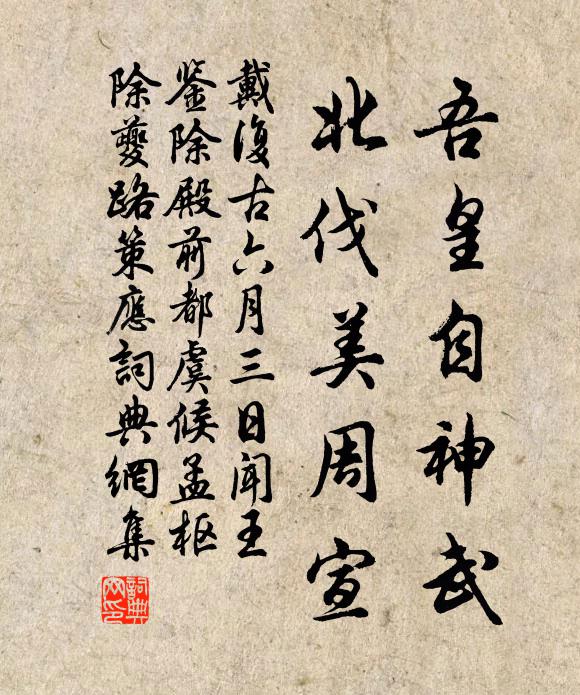 吾皇自神武
北伐美周宣
戴復古六月三日聞王
鉴除殿前都虞候孟枢
除夔路策應詞典網集
詞典
网印